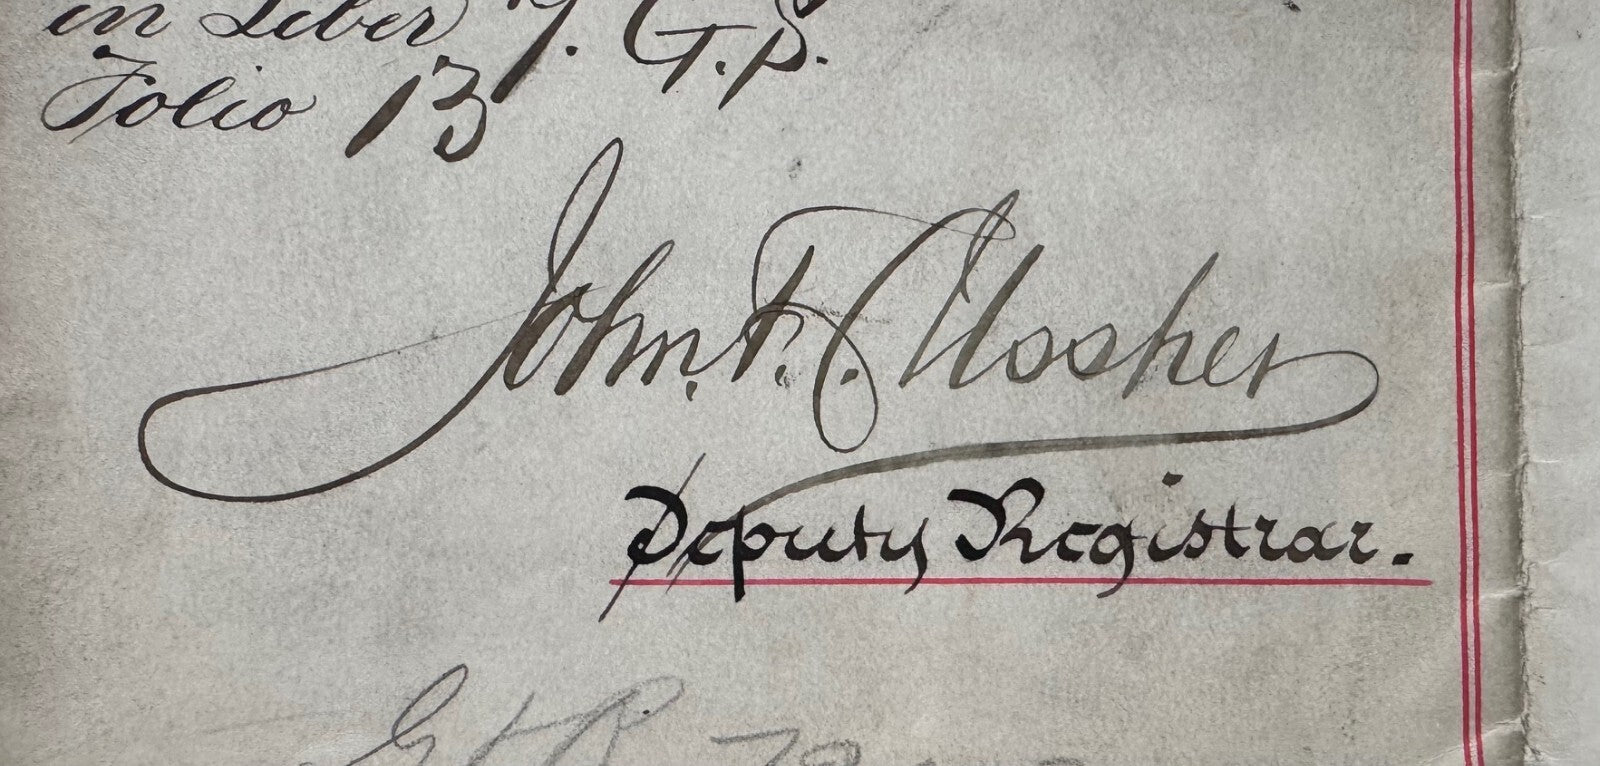 in Liber 7. G.S.
Folio 13
John. F. C. Ussher
Deputy Registrar.
G & R